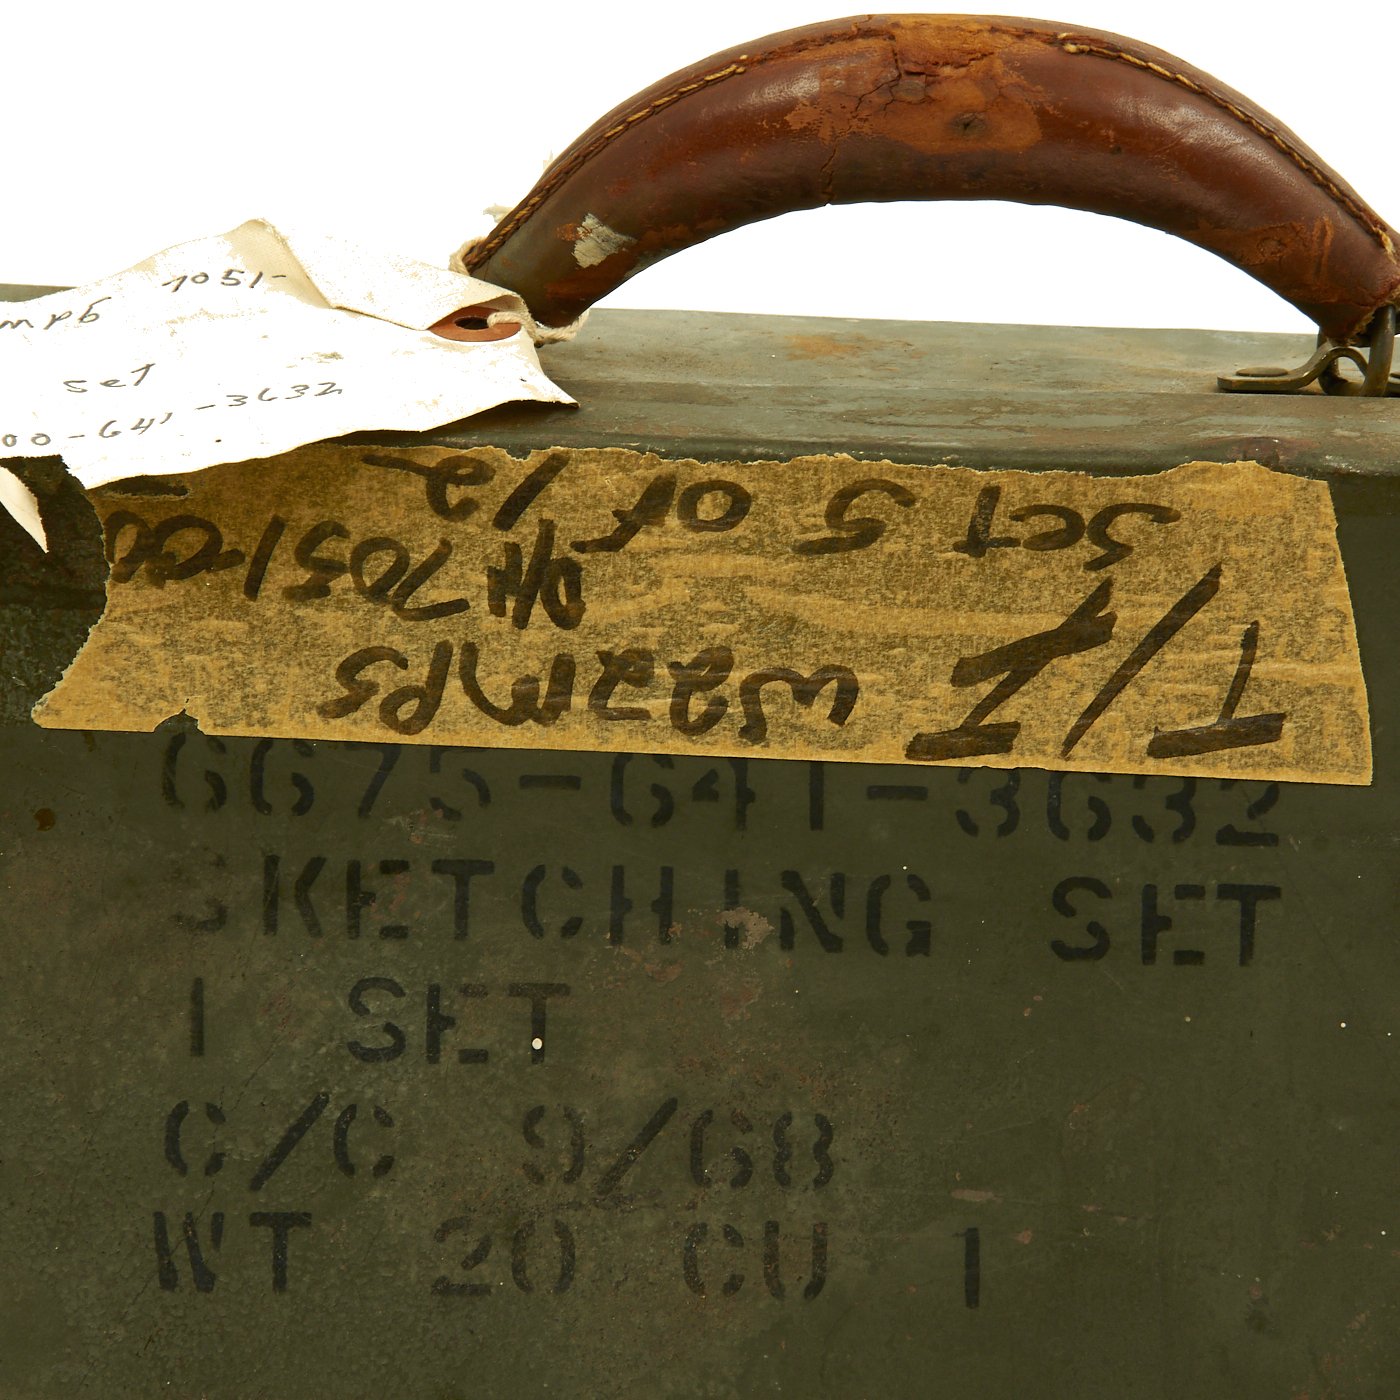 1051-
set
00-641-3632
T/I
7051/00
Set 5 of 12
6675-641-3632
SKETCHING SET
1 SET
C/C 9/68
WT 20 CU 1